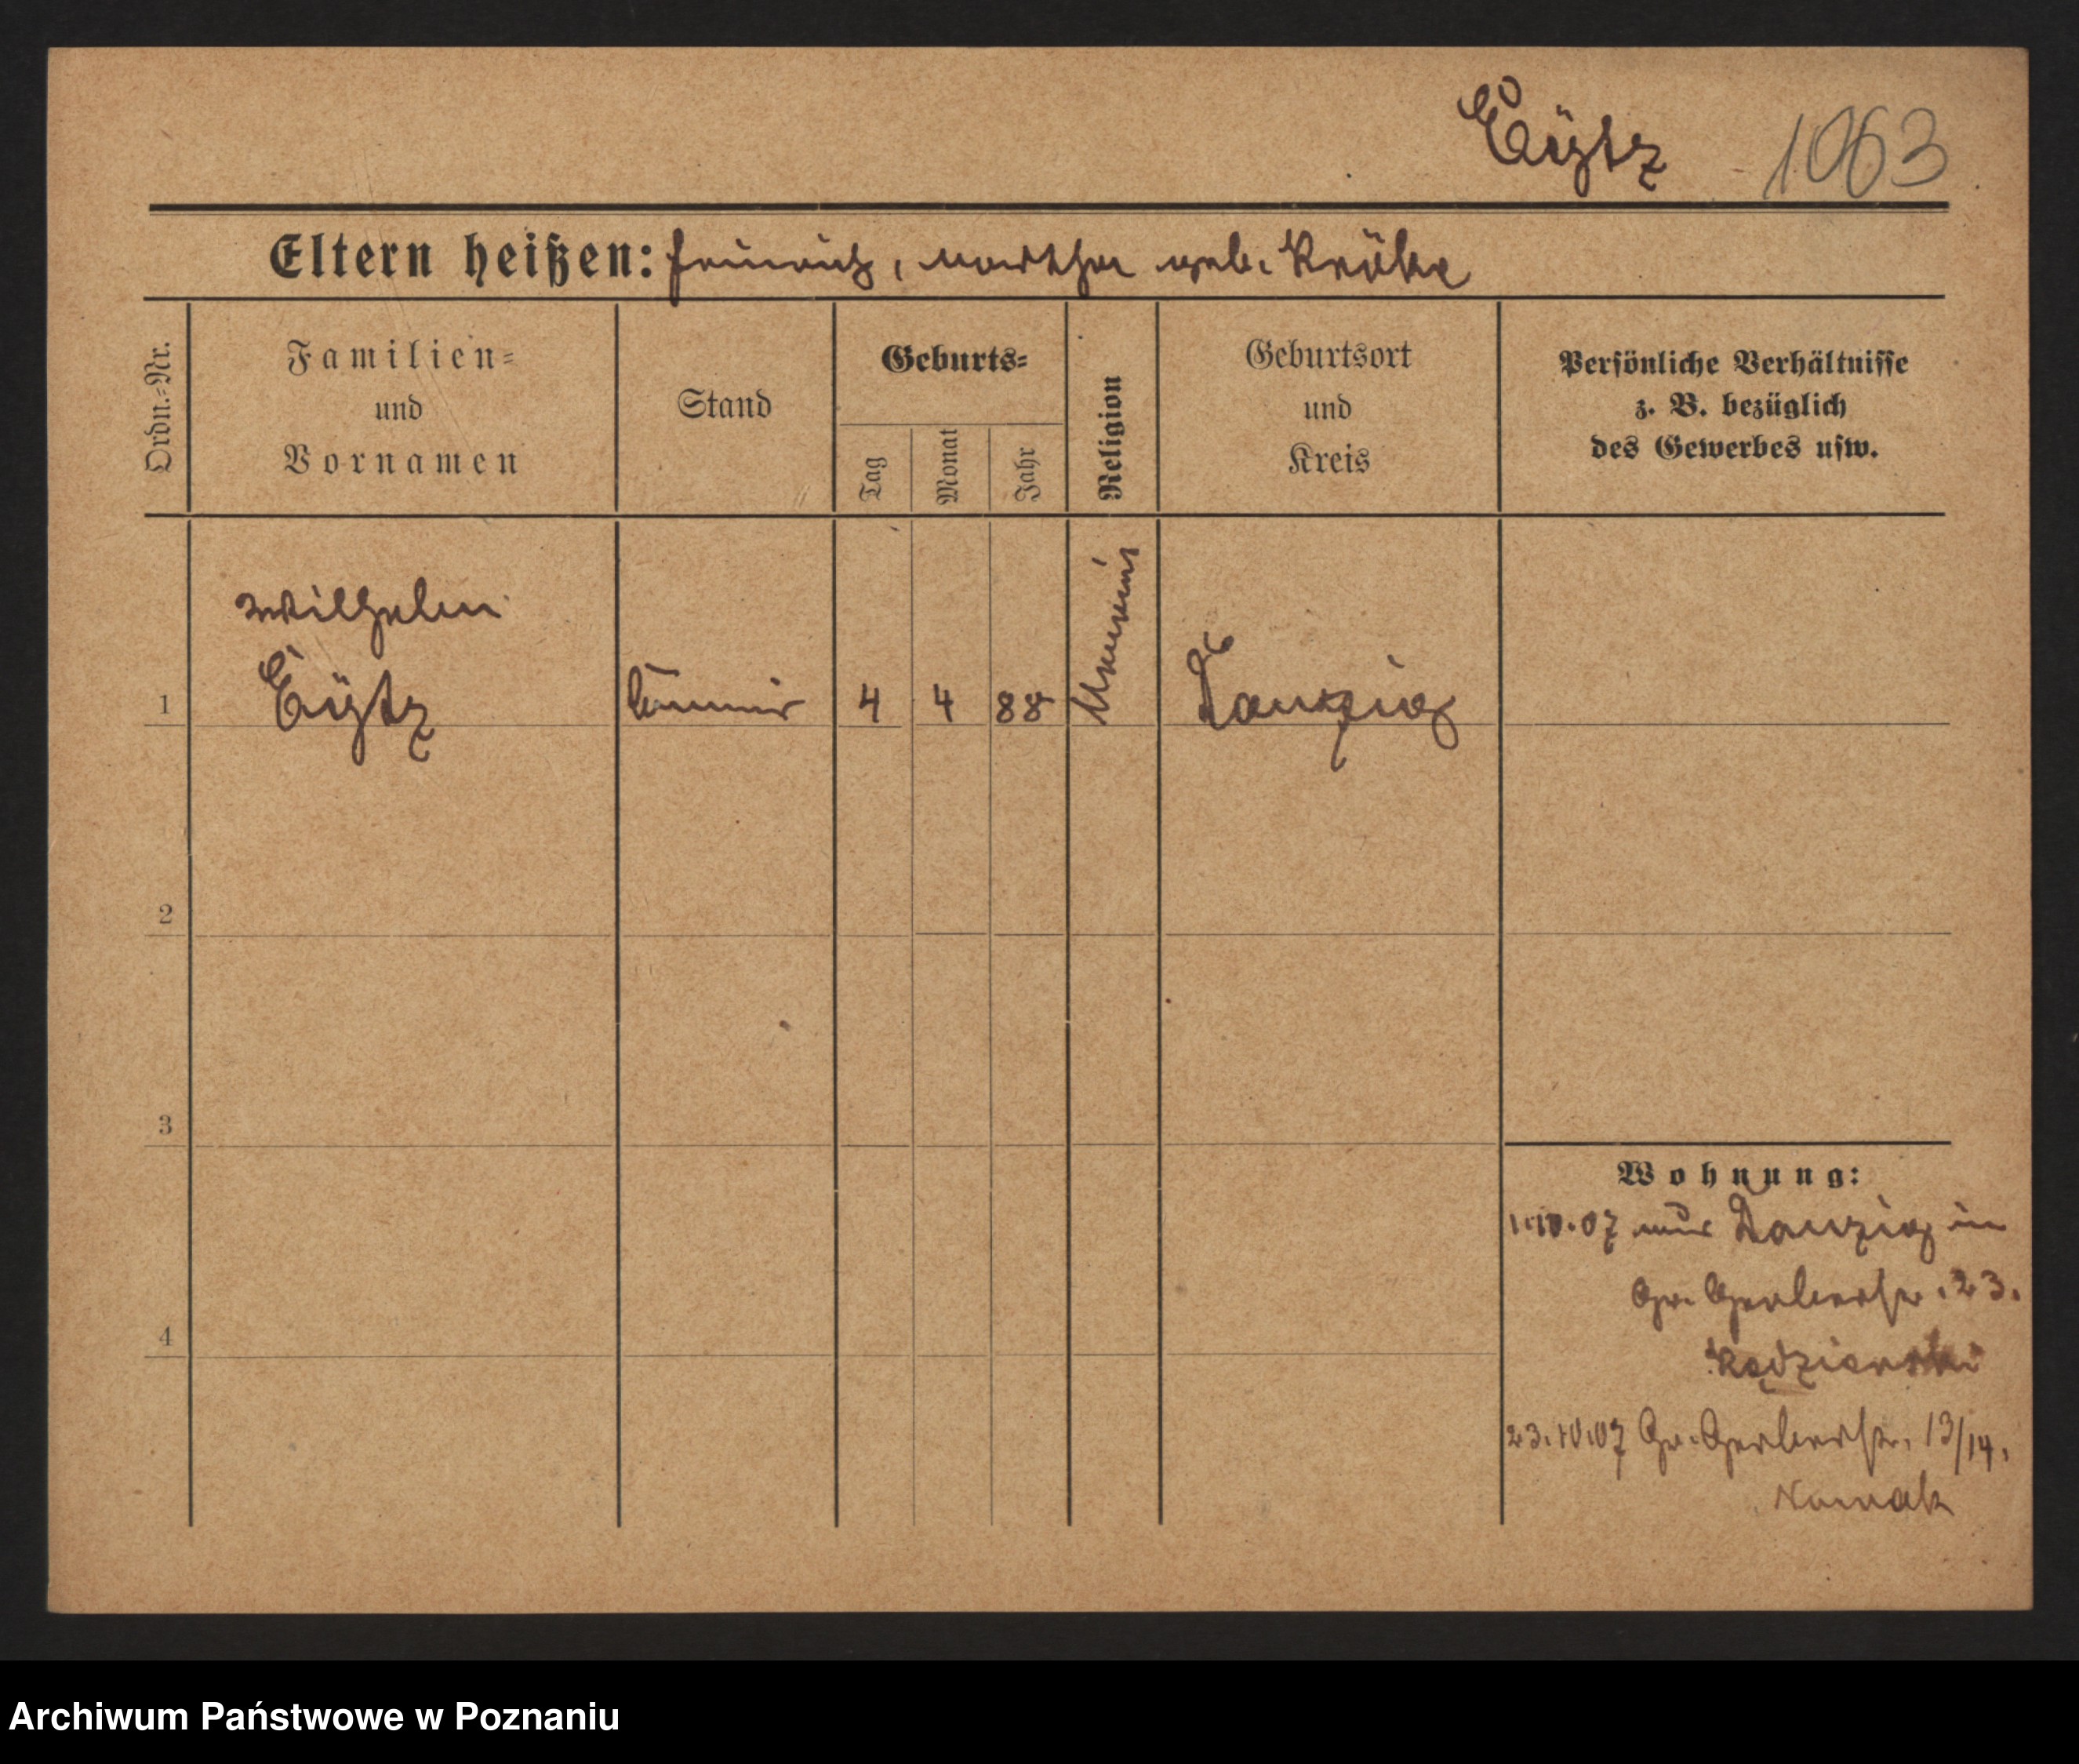 Eÿtz 1063
Eltern heißen: Heinrich, Martha geb. Kröke
Ordn.-Nr.
Familien-
und
Vornamen
Stand
Geburts-
Tag
Monat
Jahr
Religion
Geburtsort
und
Kreis
Persönliche Verhältnisse
z. B. bezüglich
des Gewerbes usw.
Wilhelm
1 Eÿtz 4 4 88 Danzig
2
3
4
Wohnung:
1.10.07 aus Danzig in
Gr. Gerberstr. 23.
Kędzierski
23.10.07 Gr. Gerberstr. 13/14.
Nowak
Archiwum Państwowe w Poznaniu